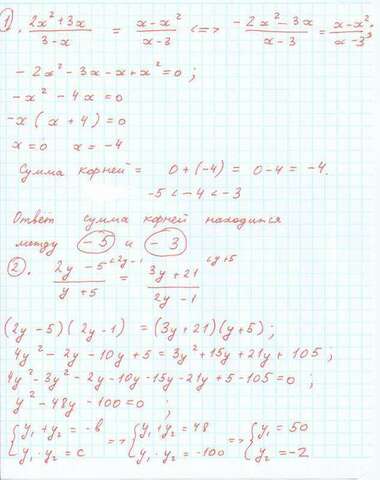 1. (2x² + 3x)/(3 - x) = (x - x²)/(x - 3) <=> (-2x² - 3x)/(x - 3) = (x - x²)/(x - 3);
- 2x² - 3x - x + x² = 0 ;
- x² - 4x = 0
-x ( x + 4 ) = 0
x = 0   x = -4
Сумма корней = 0 + (-4) = 0 - 4 = -4.
-5 < -4 < -3
Ответ сумма корней находится
между -5 и -3
2. (2y - 5)/(y + 5) \2y-1 = (3y + 21)/(2y - 1) \y+5
(2y - 5)( 2y - 1) = (3y + 21)( y + 5) ;
4y² - 2y - 10y + 5 = 3y² + 15y + 21y + 105 ;
4y² - 3y² - 2y - 10y - 15y - 21y + 5 - 105 = 0 ;
y² - 48y - 100 = 0 ;
{ y₁ + y₂ = -b => { y₁ + y₂ = 48 => { y₁ = 50
{ y₁ · y₂ = c { y₁ · y₂ = -100 { y₂ = -2